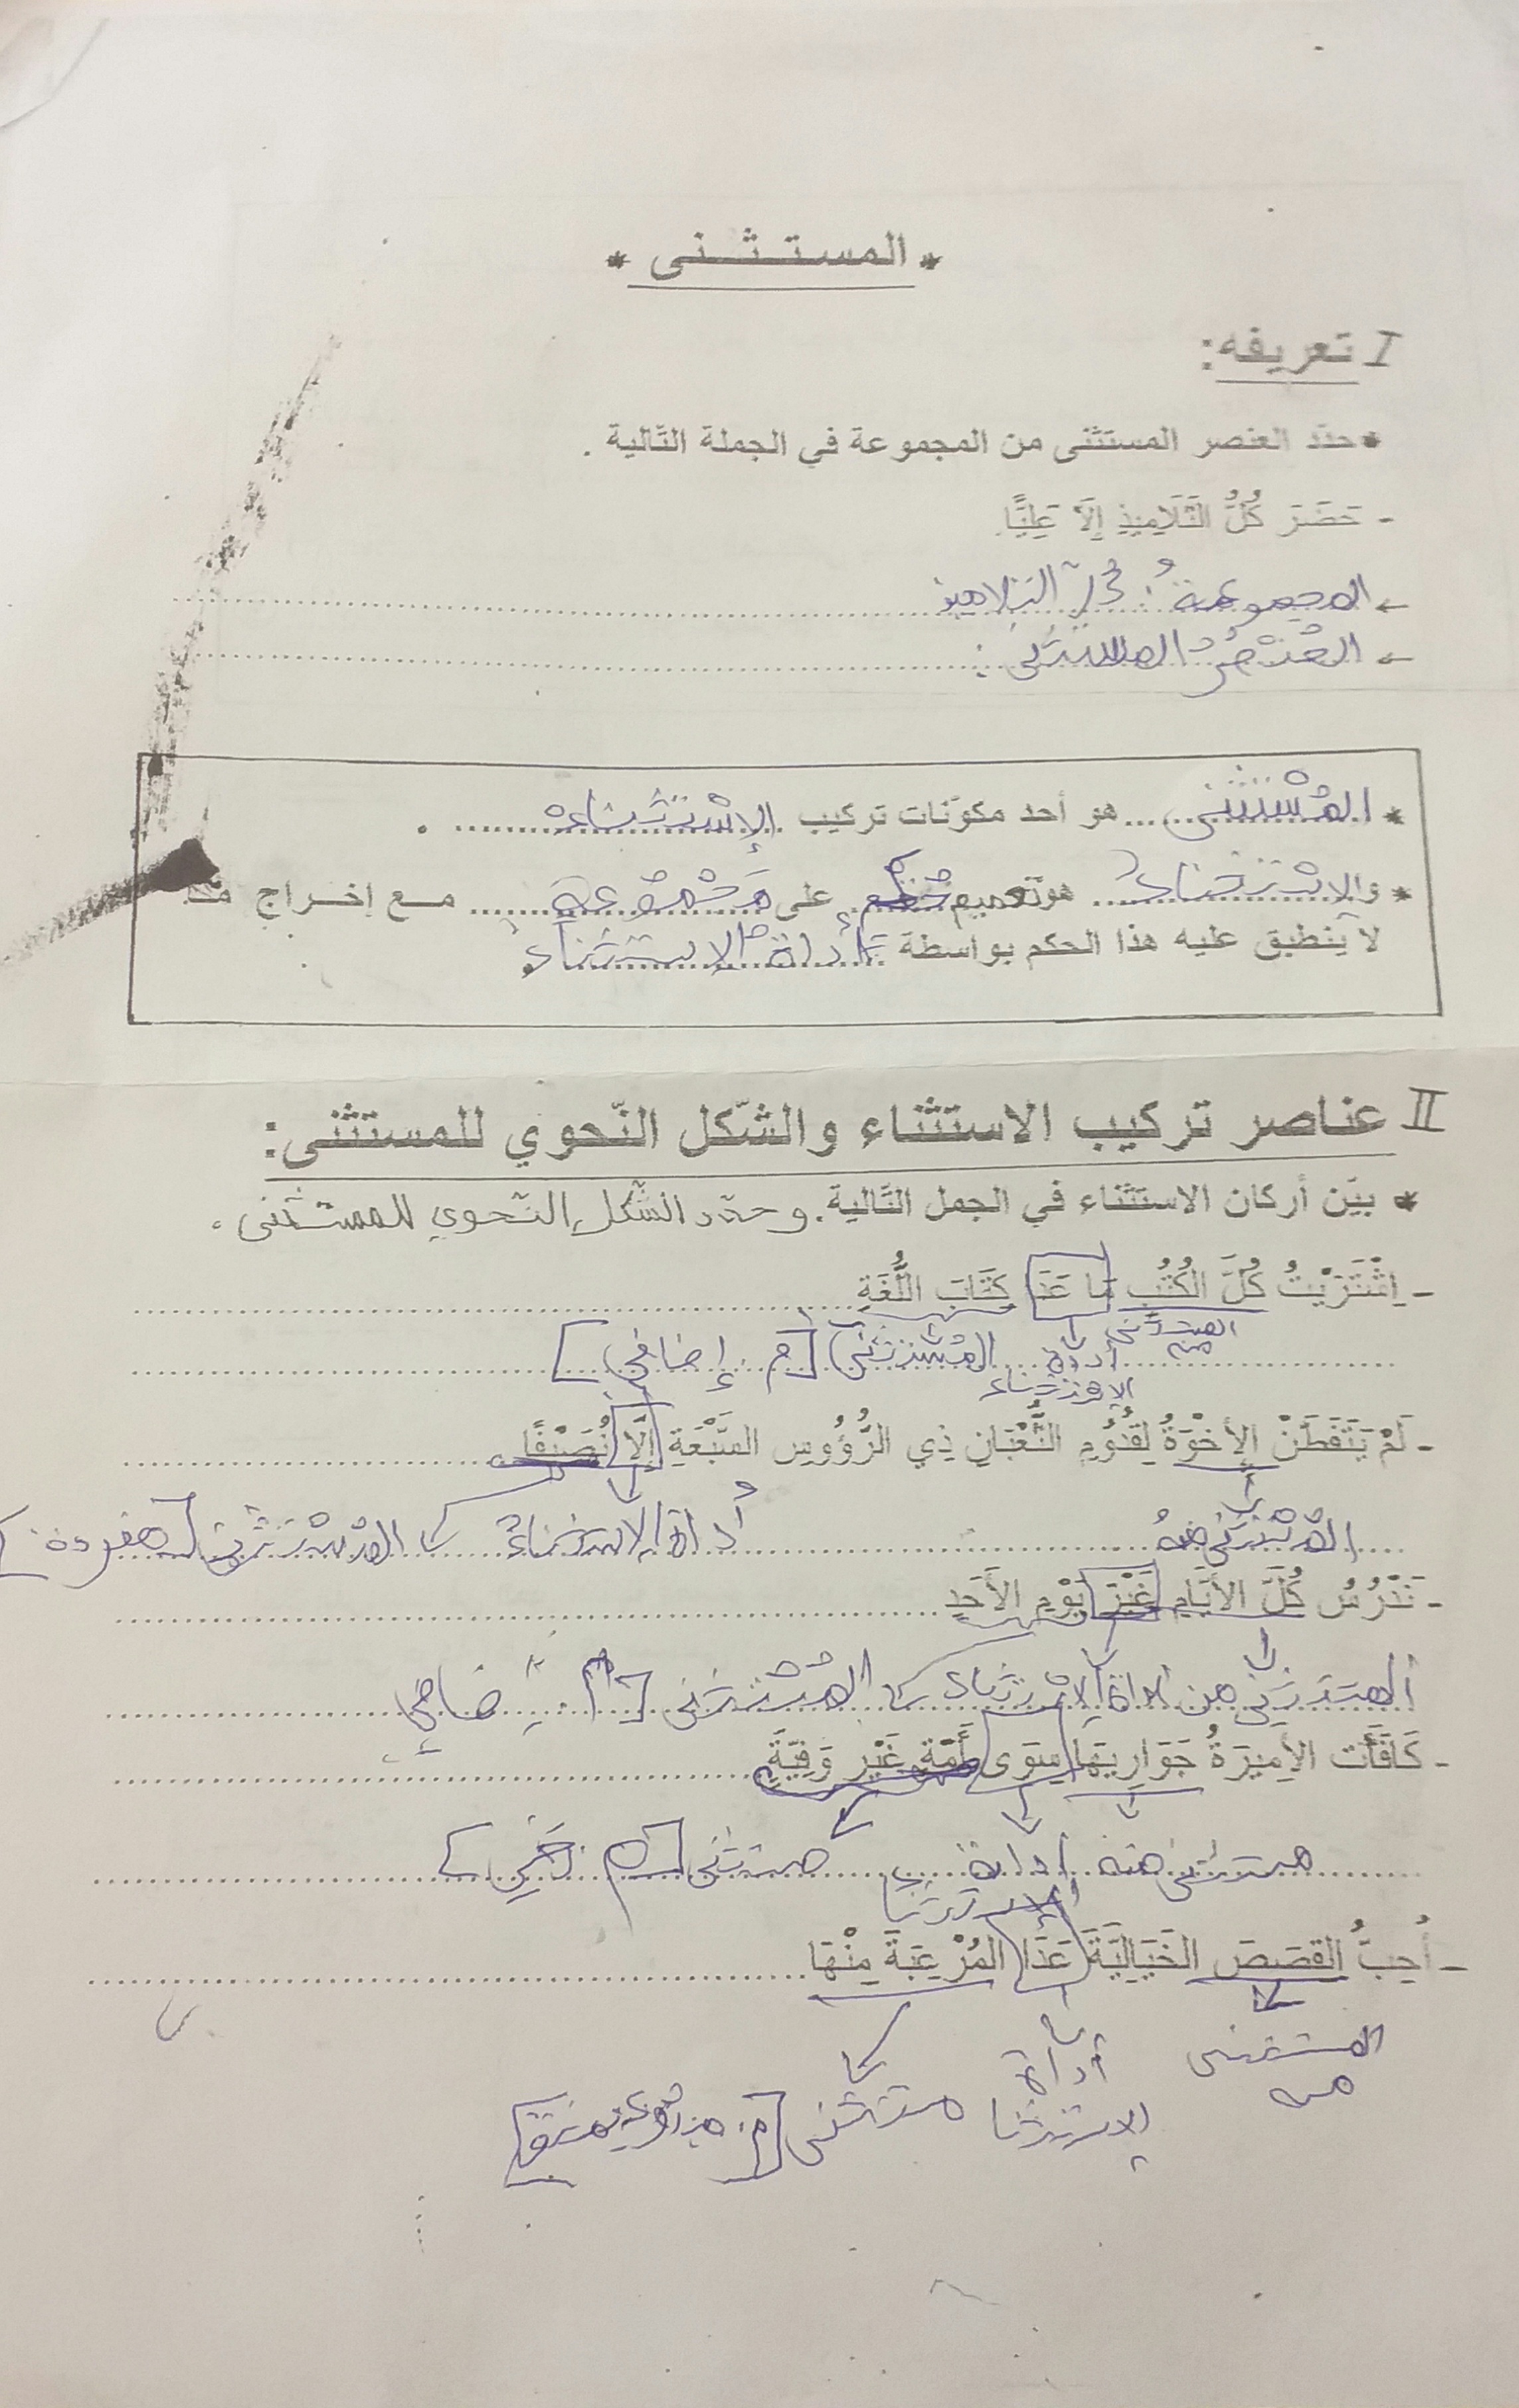 * المستثنى *
I تعريفه:
* حدّد العنصر المستثنى من المجموعة في الجملة التّالية .
- حَضَرَ كُلُّ التَّلَامِيذِ إِلَّا عَلِيًّا.
← المجموعة : كلّ التلاميذ
← العُنْصُرُ المستثنى :
* المُسْتَثْنَى ... هو أحد مكوّنات تركيب الإِسْتِثْنَاء .
* والإستثناء هو تعميم حكم على مَجْمُوعة مع إخراج ممّا
لا ينطبق عليه هذا الحكم بواسطة أداة الإستثناء.
II عناصر تركيب الاستثناء والشّكل النّحوي للمستثنى:
* بيّن أركان الاستثناء في الجمل التّالية. وحدّد الشّكل النّحوي للمستثنى .
- اِشْتَرَيْتُ كُلَّ الكُتُبِ مَا عَدَا كِتَابَ اللُّغَةِ
المستثنى منه أداة الإستثناء المستثنى [م. إضافي]
- لَمْ يَتَفَطَّنْ الإِخْوَةُ لِقُدُومِ الثُّعْبَانِ ذِي الرُّؤُوسِ السَّبْعَةِ إِلَّا نُصَيْفًا
المستثنى منه أداة الإستثناء المستثنى [مفردة]
- نَدْرُسُ كُلَّ الأَيَّامِ غَيْرَ يَوْمِ الأَحَدِ
المستثنى من أداة الإستثناء المستثنى [م. إضافي]
- كَافَأَت الأَمِيرَةُ جَوَارِيهَا سِوَى أَمَةٍ غَيْرِ وَفِيَّةٍ
مستثنى منه أداة الإستثنا مستثنى
- أُحِبُّ القَصَصَ الخَيَالِيَّةَ عَدَا المُرْعِبَةَ مِنْهَا
المستثنى منه أداة الإستثنا مستثنى